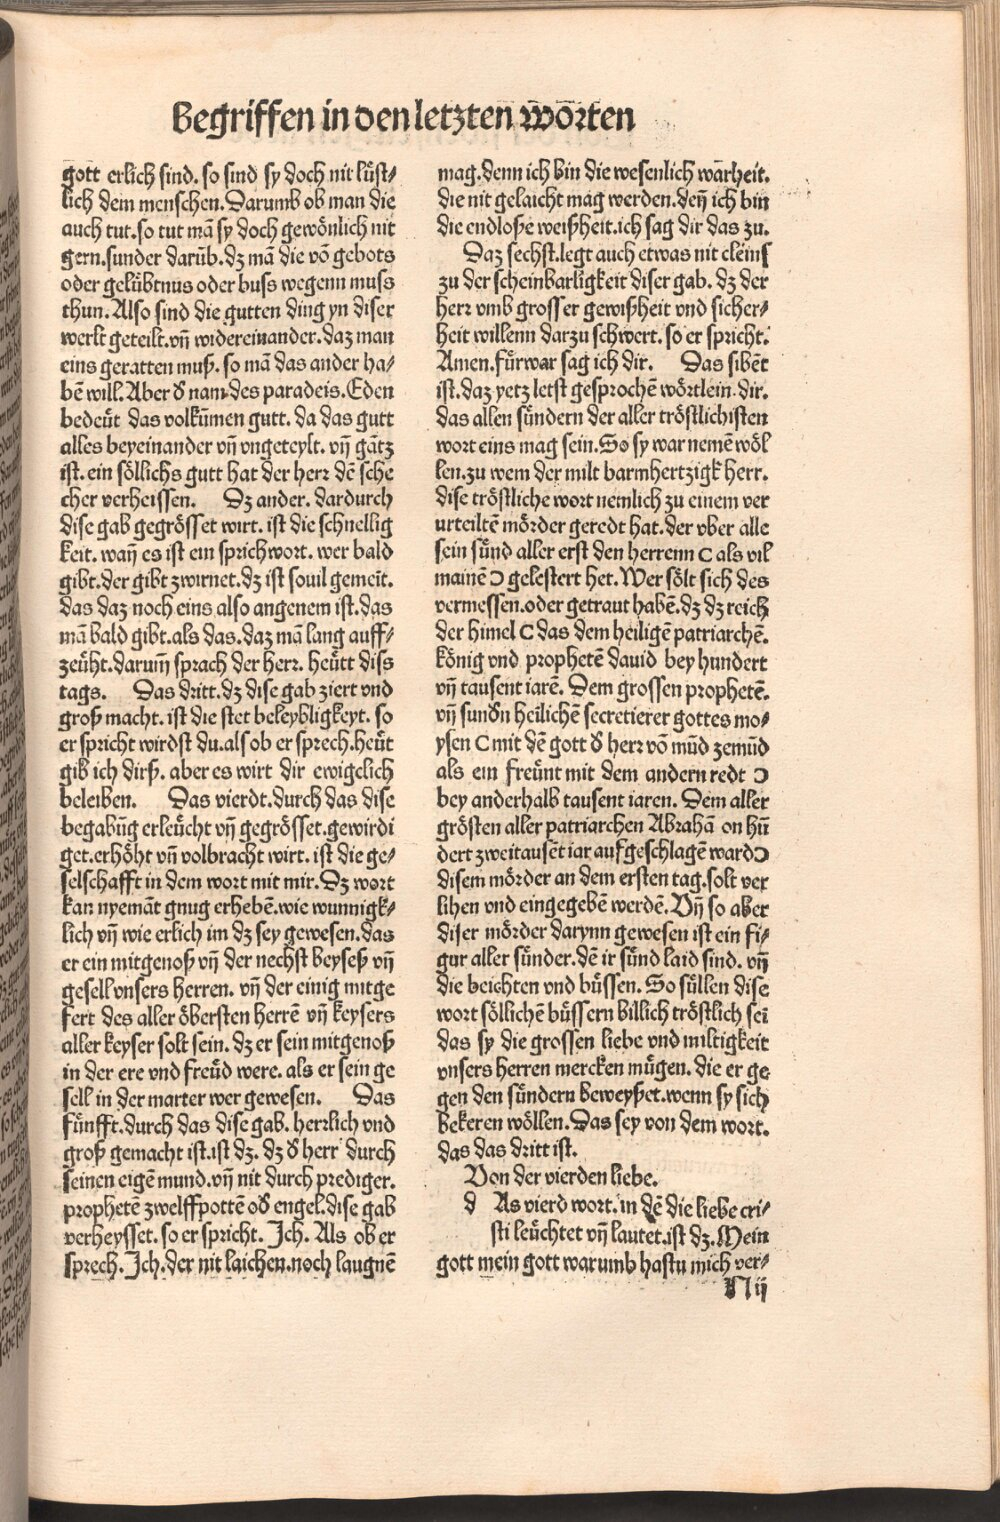 Begriffen in den letzten wōrten
gott erlich sind. so sind sy doch nit lüst⸗
lich dem menschen. Darumb ob man die
auch tut. so tut mā sy doch gewönlich nit
gern. sunder darüb. dz mā die vō gebots
oder gelübtnus oder buss wegenn muss
thun. Also sind die gutten ding yn diser
werlt geteilt. vn̄ widereinander. daz man
eins geratten muß. so mā das ander ha⸗
bē will. Aber d̕ nam des paradeis. Eden
bedeüt das volkūmen gutt. da das gutt
alles beyeinander vn̄ vngeteylt. vn̄ gātz
ist. ein söllichs gutt hat der herr dē sche
cher verheissen. Dz ander. dardurch
dise gab gegrösset wirt. ist die schnellig
keit. wan̄ es ist ein sprichwort. wer bald
gibt. der gibt zwirnet. dz ist souil gemeīt.
das daz noch eins also angenem ist. das
mā bald gibt. als das. daz mā lang auff⸗
zeüht. darum̄ sprach der herr. heütt diss
tags. Das dritt. dz dise gab ziert vnd
groß macht. ist die stet beleybligkeyt. so
er spricht wirdst du. als ob er sprech. heüt
gib ich dirß. aber es wirt dir ewigclich
beleiben. Das vierdt. durch das dise
begabūg erleücht vn̄ gegrösset. gewirdi
get. erhöht vn̄ volbracht wirt. ist die ge⸗
selschafft in dem wort mit mir. Dz wort
kan nyemāt gnug erhebē. wie wunnigk⸗
lich vn̄ wie erlich im dz sey gewesen. das
er ein mitgenoß vn̄ der nechst beyseß vn̄
gesell vnsers herren. vn̄ der einig mitge
fert des aller öbersten herrē vn̄ keysers
aller keyser solt sein. dz er sein mitgenoß
in der ere vnd freüd were. als er sein ge
sell in der marter wer gewesen. Das
fünfft. durch das dise gab. herrlich vnd
groß gemacht ist. ist dz. dz d̕ herr durch
seinen eigē mund. vn̄ nit durch prediger.
prophetē zwelffpottē od̕ engel. dise gab
verheysset. so er spricht. Jch. Als ob er
sprech. Jch. der nit laichen. noch laugnē
mag. denn ich bin die wesenlich warheit.
die nit gelaicht mag werden. den̄ ich bin
die endloße weißheit. ich sag dir das zu.
Daz sechst. legt auch etwas nit cleins
zu der scheinbarligkeit diser gab. dz der
herr vmb grosser gewißheit vnd sicher⸗
heit willenn darzu schwert. so er spricht.
Amen. fürwar sag ich dir. Das sibēt
ist. daz yetz letst gesprochē wörtlein. dir.
das allen sündern der aller tröstlichisten
wort eins mag sein. So sy war nemē wöl
len. zu wem der milt barmhertzigk herr.
dise tröstliche wort nemlich zu einem ver
urteiltē mörder geredt hat. der vber alle
sein sünd aller erst den herrenn C als vil
mainē Ɔ gelestert het. Wer sölt sich des
vermessen. oder getraut habē. dz dz reich
der himel C das dem heiligē patriarchē.
könig vnd prophetē dauid bey hundert
vn̄ tausent iarē. Dem grossen prophetē.
vn̄ sund̕n heilichē secretierer gottes mo⸗
ysen C mit dē gott d̕ herr vō mūd zemūd
als ein freünt mit dem andern redt Ɔ
bey anderhalb tausent iaren. Dem aller
grösten aller patriarchen Abrahā on hū
dert zweitausēt iar aufgeschlagē ward Ɔ
disem mörder an dem ersten tag. solt ver
lihen vnd eingegebē werdē. Vn̄ so aber
diser mörder darynn gewesen ist ein fi⸗
gur aller sünder. dē ir sünd laid sind. vn̄
die beichten vnd büssen. So süllen dise
wort söllichē büssern billich tröstlich sei
das sy die grossen liebe vnd miltigkeit
vnsers herren mercken mügen. die er ge
gen den sündern beweyßet. wenn sy sich
bekeren wöllen. Das sey von dem wort.
das das dritt ist.
Von der vierden liebe.
d As vierd wort. in dē die liebe cri⸗
sti leüchtet vn̄ lautet. ist dz. Mein
gott mein gott warumb hastu mich ver⸗
N ij